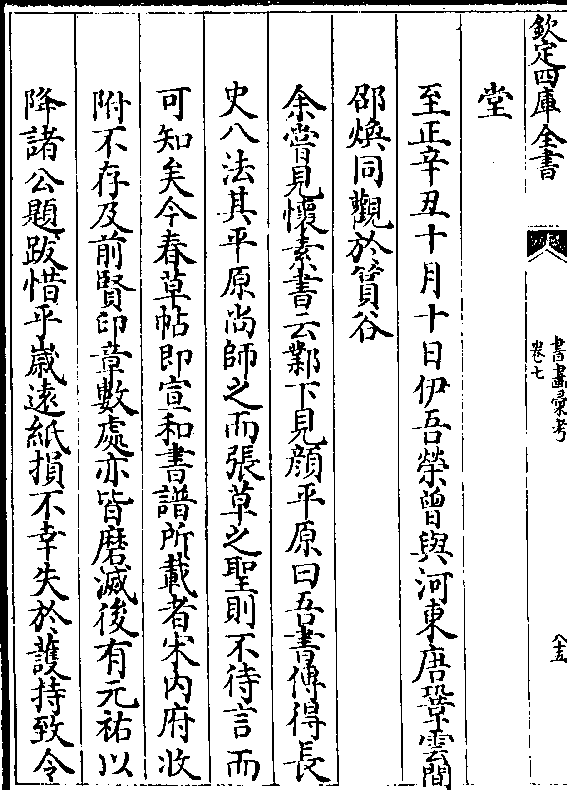 欽定四庫全書
書畫彙考
卷七
八五
堂
至正辛丑十月十日伊吾榮曾與河東唐鞏雲間
邵煥同觀於篔谷
余嘗見懷素書云鄴下見顔平原曰吾書傳得長
史八法其平原尚師之而張草之聖則不待言而
可知矣今春草帖即宣和書譜所載者宋内府收
附不存及前賢印章數處亦皆磨滅後有元祐以
降諸公題跋惜乎歲遠紙損不幸失於護持致令